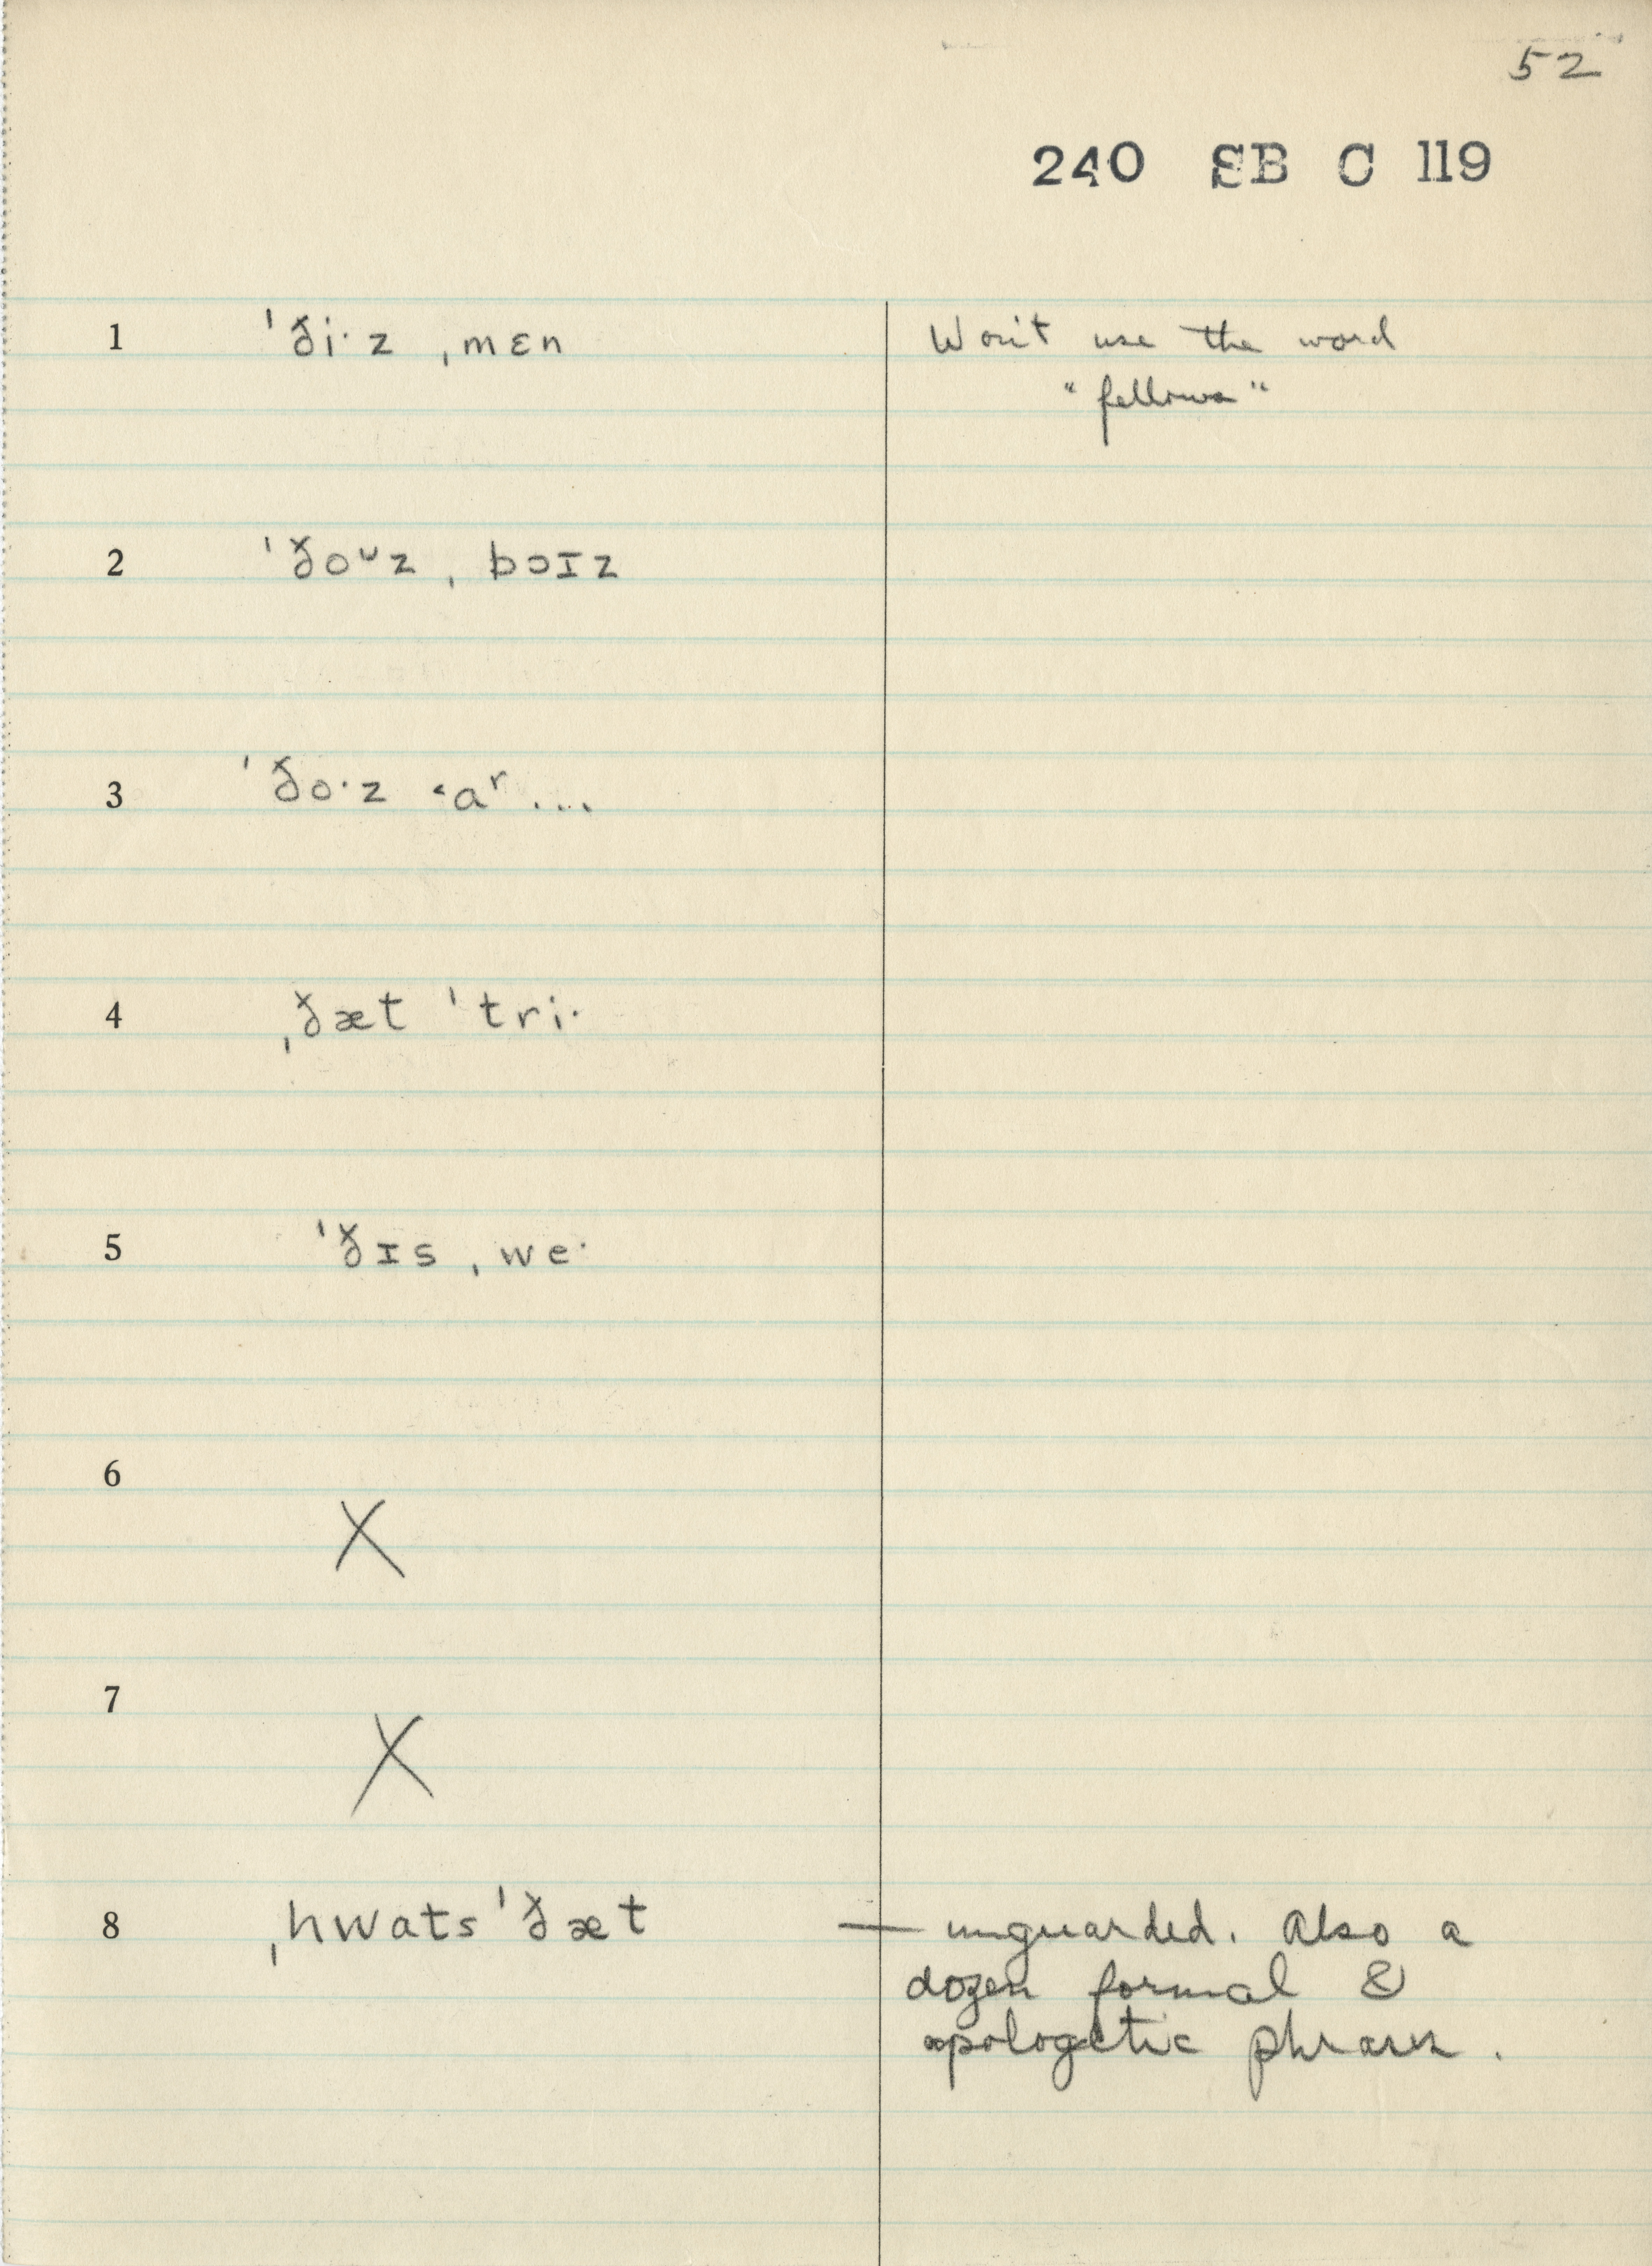 52
240 SB C 119
1 ˈði·z ˌmɛn Won't use the word
"fellows"
2 ˈðoᴜz ˌbɔɪz
3 ˈðo·z ˂aʳ ...
4 ˌðæt ˈtri·
5 ˈðɪs ˌwe·
6
X
7
X
8 ˌhwatsˈðæt — unguarded. Also a
dozen formal &
apologetic phrases.